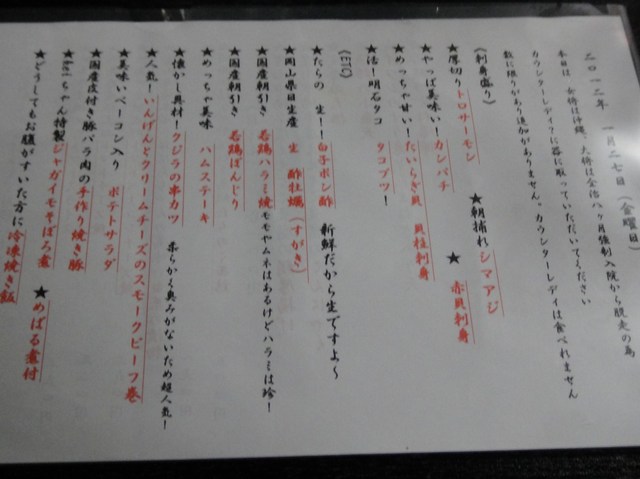 二〇一二年 一月二七日(金曜日)
本日は、女将は沖縄、大将は金治ハヶ月強制入院から脱走の為
カウンターレディ?に器に取っていただいてください
数に限りがあり追加がありません。カウンターレディは食べれません
《刺身盛り》
★厚切りトロサーモン ★朝捕れ シマアジ
★やっぱ美味い!カンパチ ★ 赤貝刺身
★めっちゃ甘い!たいらぎ貝 貝柱刺身
★活!明石タコ タコブツ!
《ETC》
★たらの 生!!白子ポン酢 新鮮だから生ですよ~
★岡山県日生産 生 酢牡蠣(すがき)
★国産朝引き 若鶏ハラミ焼 モモやムネはあるけどハラミは珍!
★国産朝引き 若鶏ぼんじり
★めっちゃ美味 ハムステーキ
★懐かし具材!クジラの串カツ 柔らかく臭みがないため超人気!
★人気!いんげんとクリームチーズのスモークビーフ巻
★美味いベーコン入り ポテトサラダ
★国産皮付き豚バラ肉の手作り焼き豚
★ちゃん特製ジャガイモそぼろ煮 ★めばる煮付
★どうしてもお腹がすいた方に冷凍焼き飯